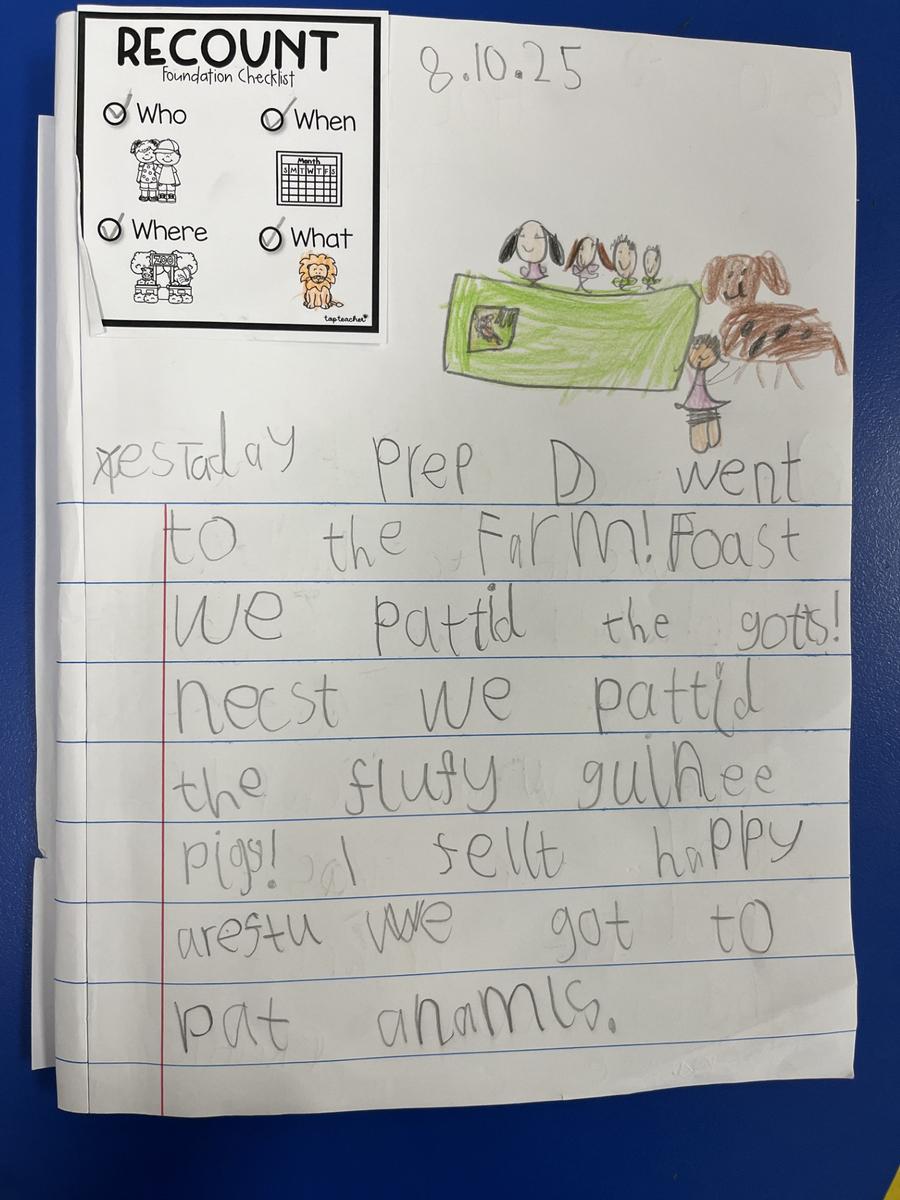 RECOUNT
Foundation Checklist
Who When
Month
S M T W T F S
Where What
ZOO
top teacher
8.10.25
yesTaday prep D went
to the Farm! Foast
we pattid the gotts!
necst we pattid
the flufy guinee
pigs! I fellt happy
arestu we got to
pat anamls.